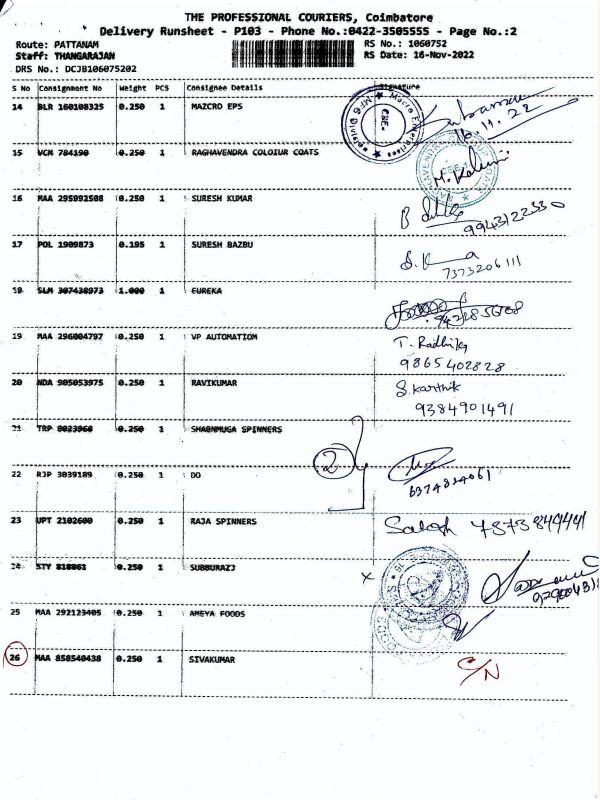 THE PROFESSIONAL COURIERS, Coimbatore
Delivery Runsheet - P103 - Phone No.:0422-3505555 - Page No.:2
Route: PATTANAM RS No.: 1060752
Staff: THANGARAJAN RS Date: 16-Nov-2022
DRS No.: DCJB106075202
S No Consignment No Weight PCS Consignee Details Signature
14 BLR 160108325 0.250 1 MAZCRO EPS
16.11.22
15 VCM 784190 0.250 1 RAGHAVENDRA COLOIUR COATS
16 MAA 295992508 0.250 1 SURESH KUMAR
9943122330
17 POL 1909873 0.195 1 SURESH BAZBU
7373206111
18 SLM 307438973 1.000 1 EUREKA
19 MAA 296004797 0.250 1 VP AUTOMATIOM T. Radhika
9865402828
20 NDA 905053975 0.250 1 RAVIKUMAR S. Karthik
9384901491
21 TRP 8023968 0.250 1 SHABNMUGA SPINNERS
2
22 RJP 3039189 0.250 1 DO
23 UPT 2102600 0.250 1 RAJA SPINNERS
24 STY 818861 0.250 1 SUBBURAZJ
x
25 MAA 292123405 0.250 1 AMEYA FOODS
26 MAA 858540438 0.250 1 SIVAKUMAR C/N